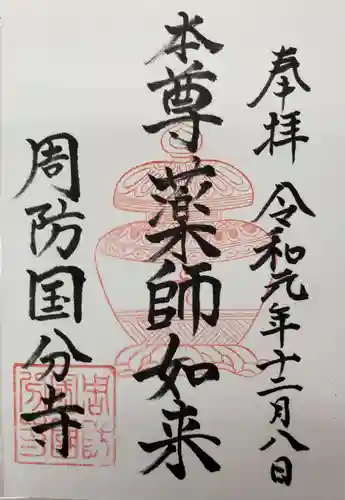 奉拝 令和元年十二月八日
本尊 薬師如来
周防国分寺